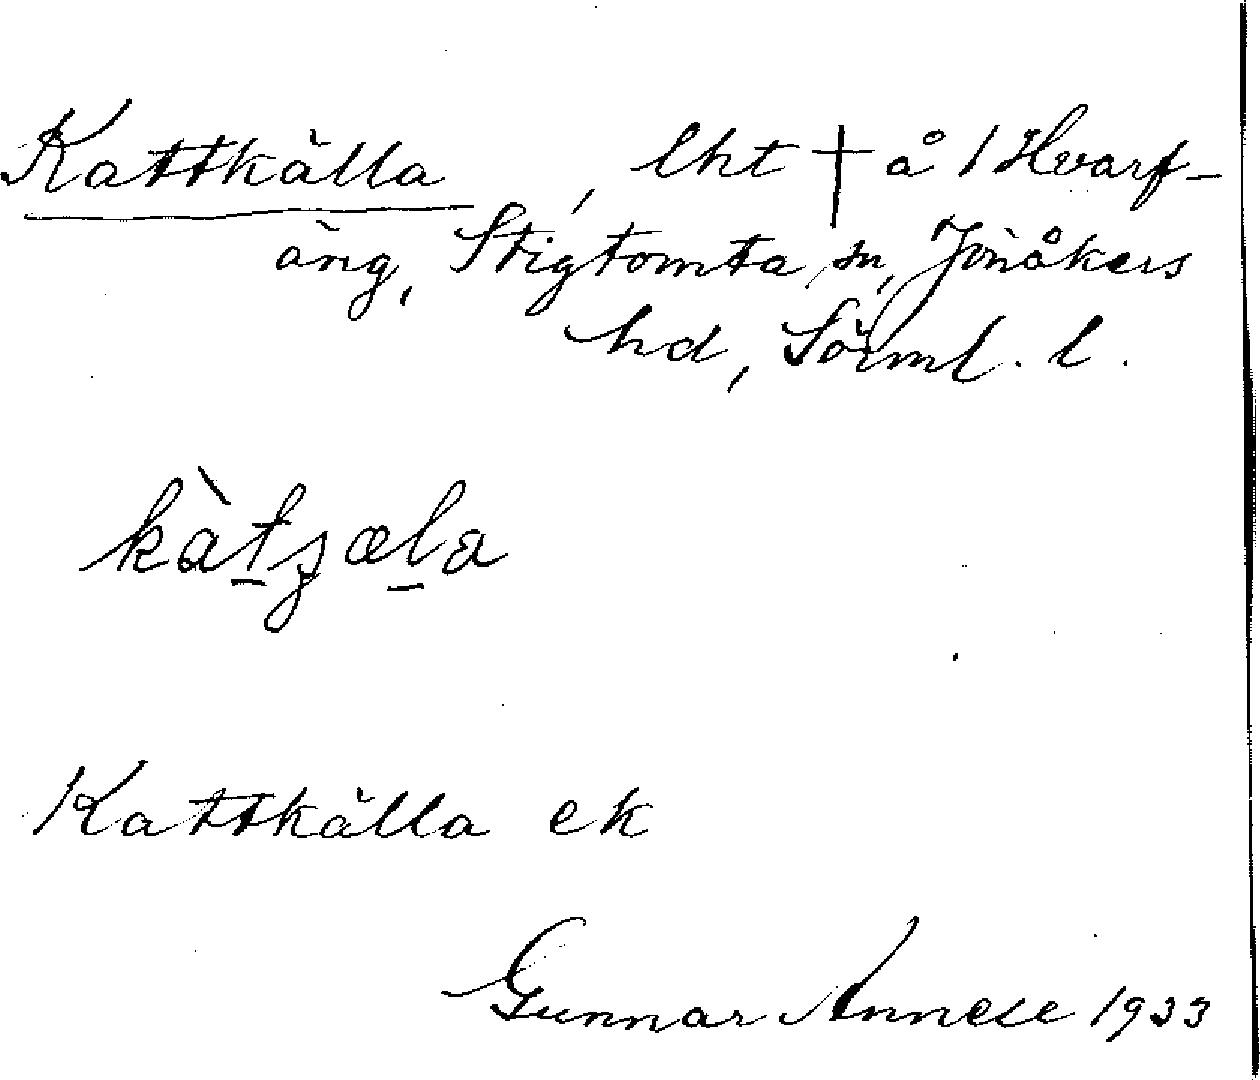 Kattkälla, lht † å 1 Hvarf-
äng, Stigtomta sn, Jönåkers
hd, Sörml. l.
kàtʒæla
Kattkälla ek
Gunnar Annell 1933